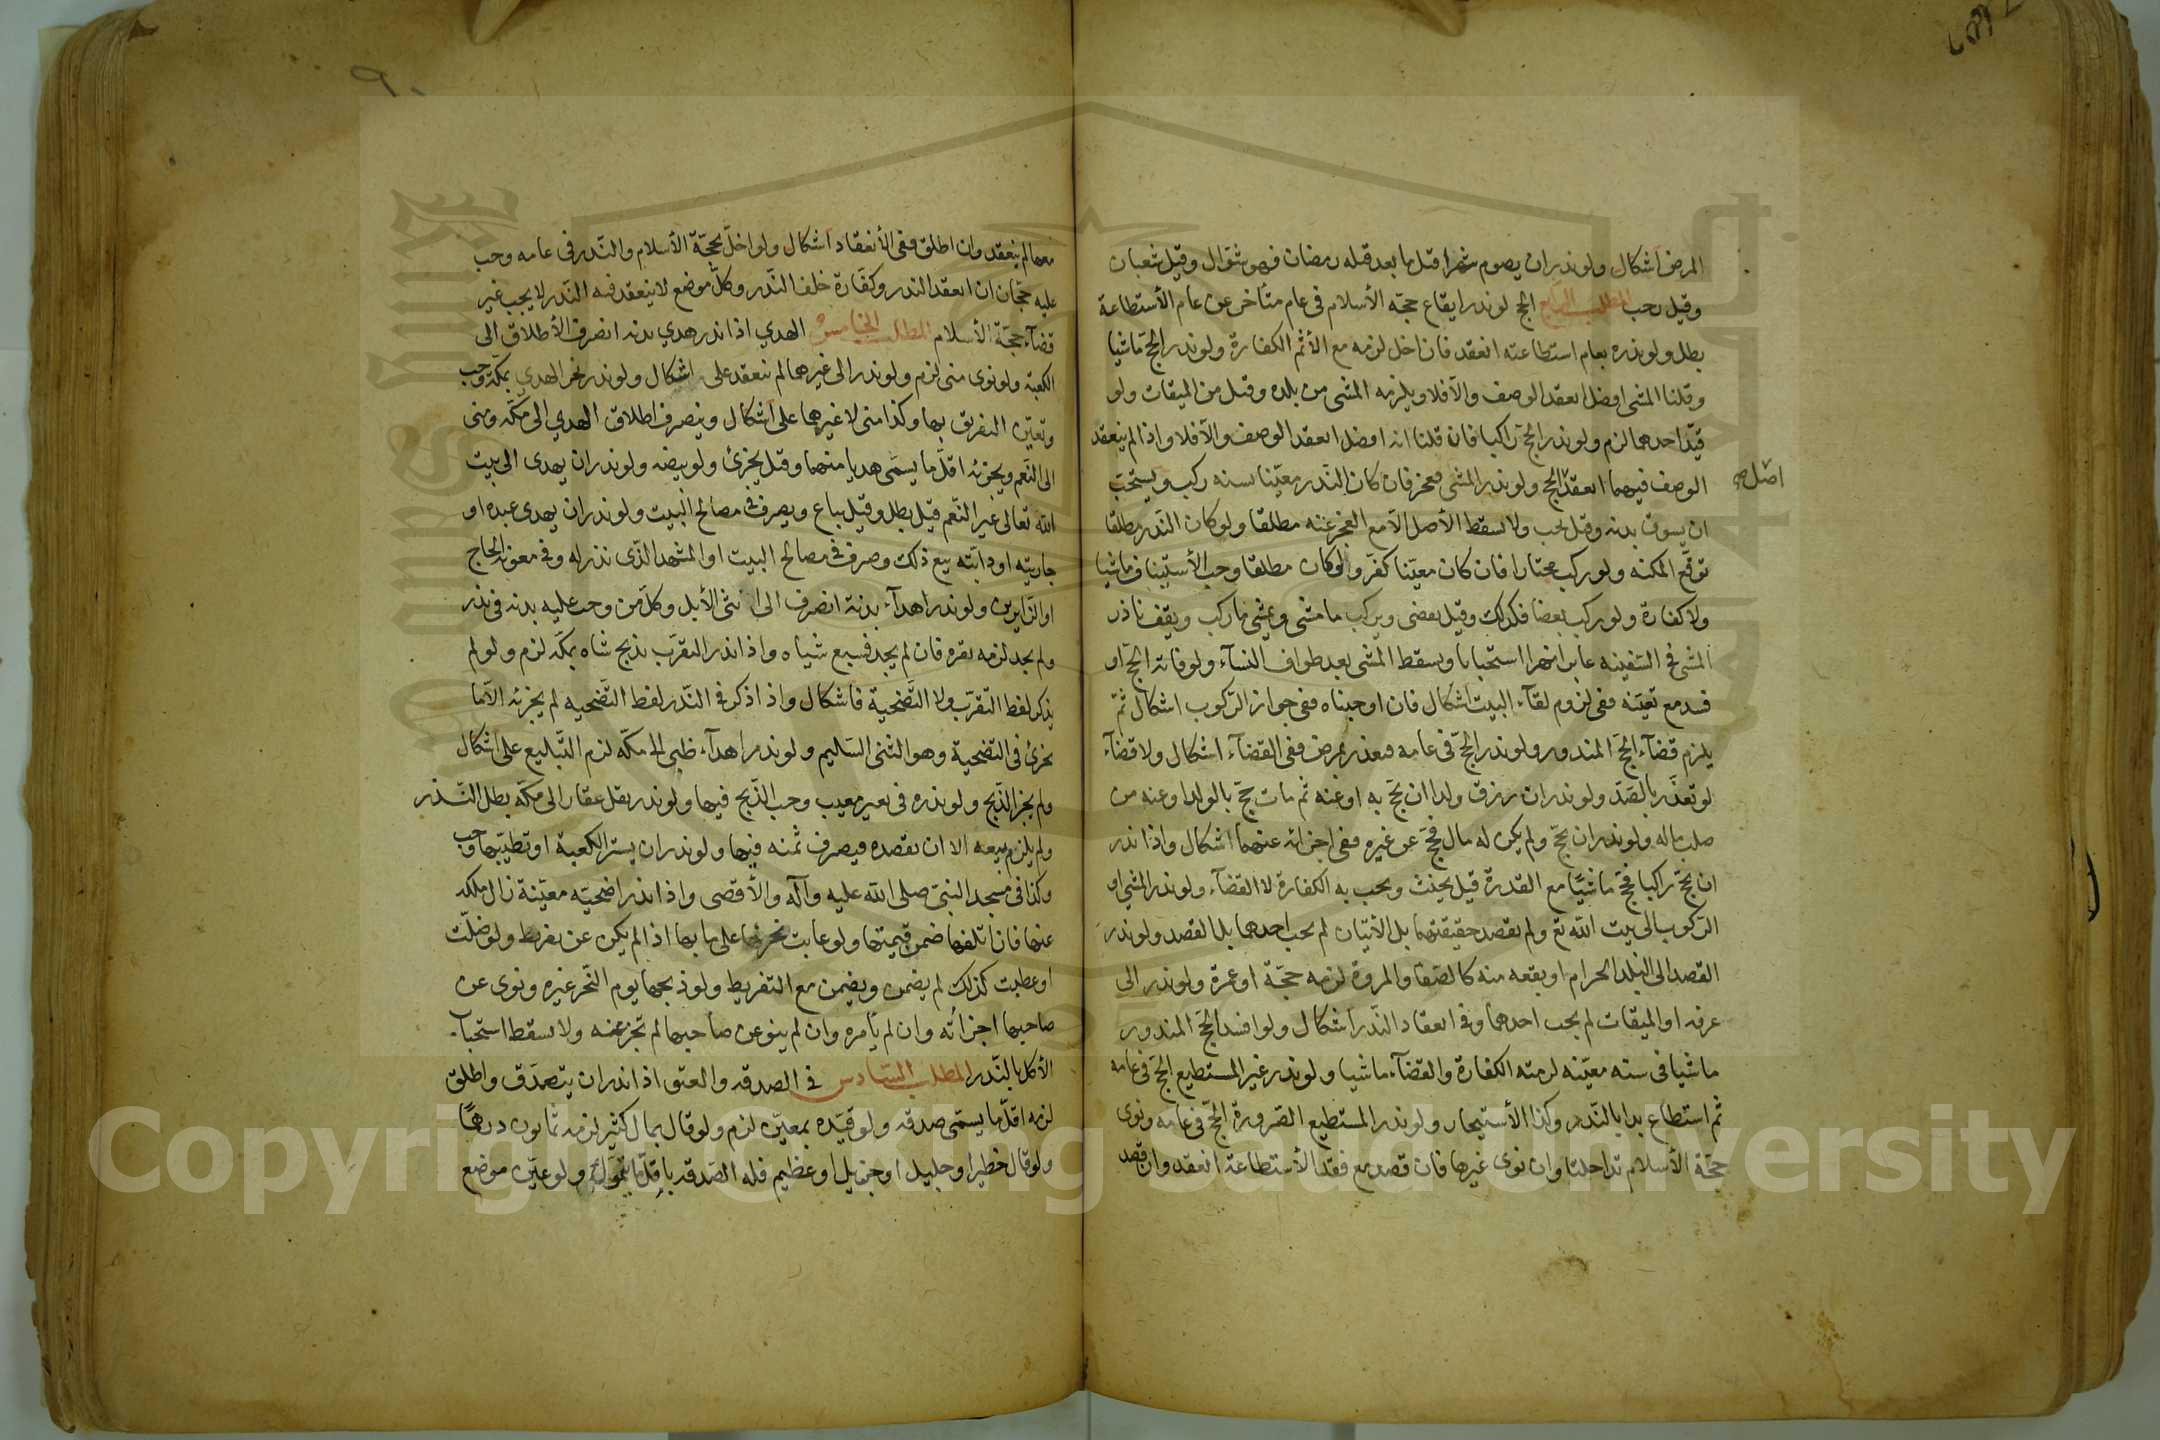 المرض اشكال ولو نذر ان يصوم شهرا قبل ما بعد قبله رمضان فهو شوال وقيل شعبان
وقيل رجب المطلب الرابع الحج لو نذر ايقاع حجة الأسلام فى عام متأخر عن عام الأستطاعة
بطل ولو نذره بعام استطاعته انعقد فان اخل لزمه مع الأثم الكفارة ولو نذر الحج ماشيا
وقلنا المشى افضل انعقد الوصف والا فلا ويلزمه المشى من بلده وقيل من الميقات ولو
قيد احدهما لزم ولو نذر الحج راكبا فان قلنا انه افضل انعقد الوصف والا فلا واذا لم ينعقد
الوصف فيهما انعقد الحج ولو نذر المشى فعجز فان كان النذر معينا بسنه ركب ويستحب
ان يسوق بدنه وقيل يجب ولا يسقط الأصل الا مع العجز عنه مطلقا ولو كان النذر مطلقا
توقع المكنه ولو ركب مختارا فان كان معينا كفر ولو كان مطلقا وجب الأستيناف ماشيا
ولا كفارة ولو ركب بعضا فكذلك وقيل يقضى ويركب ما مشى ويمشى ما ركب ويقف ناذر
المشى فى السفينه عابرا نهرا استحبابا ويسقط المشى بعد طواف النسآء ولو فاته الحج او
فسد مع تعينه ففى لزوم لقآء البيت اشكال فان اوجبناه ففى جواز الركوب اشكال ثم
يلزم قضآء الحج المنذور ولو نذر الحج فى عامه فتعذر بمرض ففى القضآء اشكال ولا قضآء
لو تعذر بالصد ولو نذر ان رزق ولدا ان يحج به او عنه ثم مات حج بالولد او عنه من
صلب ماله ولو نذر ان يحج ولم يكن له مال فحج عن غيره ففى اجزائه عنهما اشكال واذا نذر
ان يحج راكبا فحج ماشيا مع القدرة قيل يحنث ويجب به الكفارة لا القضآء ولو نذر المشى او
الركوب الى بيت الله تع ولم يقصد حقيقتهما بل الأتيان لم يجب احدهما بل القصد ولو نذر
القصد الى البلد الحرام او بقعه منه كالصفا والمروة لزمه حجة او عمرة ولو نذر الى
عرفه او الميقات لم يجب احدهما وفى انعقاد النذر اشكال ولو افسد الحج المنذور
ماشيا فى سنه معينه لزمته الكفارة والقضآء ماشيا ولو نذر غير المستطيع الحج فى عامه
ثم استطاع بدا بالنذر وكذا الأستيجار ولو نذر المستطيع الصرورة الحج فى عامه ونوى
حجة الأسلام تداخلتا وان نوى غيرها فان قصد مع فقد الأستطاعة انعقد وان قصد
معها لم ينعقد وان اطلق ففى الأنعقاد اشكال ولو اخل بحجة الأسلام والنذر فى عامه وجب
عليه حجتان ان انعقد النذر وكفارة خلف النذر وكل موضع لا ينعقد فيه النذر لا يجب غير
قضآء حجة الأسلام المطلب الخامس الهدي اذا نذر هدي بدنه انصرف الأطلاق الى
الكعبة ولو نوى منى لزم ولو نذر الى غيرهما لم ينعقد على اشكال ولو نذر نحر الهدي بمكة وجب
وتعين التفريق بها وكذا منى لا غيرهما على اشكال وينصرف اطلاق الهدي الى مكة ومنى
الى النعم ويجزئه اقل ما يسمى هديا منهما وقيل يجزئ ولو بيضه ولو نذر ان يهدى الى بيت
الله تعالى غير النعم قيل بطل وقيل يباع ويصرف فى مصالح البيت ولو نذر ان يهدى عبده او
جاريته او دابته بيع ذلك وصرف فى مصالح البيت او المشهد الذى نذر له وفى معونة الحاج
او الزايرين ولو نذر اهدآء بدنة انصرف الى انثى الأبل وكل من وجب عليه بدنه فى نذر
ولم يجد لزمه بقره فان لم يجد فسبع شياه واذا نذر التقرب بذبح شاه بمكة لزم ولو لم
يذكر لفظ التقرب ولا التضحية فاشكال واذا ذكر فى النذر لفظ التضحيه لم يجزئه الا ما
يجزئ فى التضحية وهو الثنى السليم ولو نذر اهدآء ظبى الى مكه لزم التبليغ على اشكال
ولم يجز الذبح ولو نذره فى بعير معيب وجب الذبح فيها ولو نذر نقل عقار الى مكة بطل النذر
ولم يلزم بيعه الا ان يقصده فيصرف ثمنه فيها ولو نذر ان يستر الكعبة او تطييبها وجب
وكذا فى مسجد النبى صلى الله عليه وآله والأقصى واذا نذر اضحيته معينة زال ملكه
عنها فان اتلفها ضمن قيمتها ولو عابت نحرها على ما بها اذا لم يكن عن تفريط ولو ضلت
او عطبت كذلك لم يضمن ويضمن مع التفريط ولو ذبحها يوم النحر غيره ونوى عن
صاحبها اجزأته وان لم يأمره وان لم ينو عن صاحبها لم تجز عنه ولا يسقط استحباب
الأكل بالنذر المطلب السادس فى الصدقه والعتق اذا نذر ان يتصدق واطلق
لزمه اقل ما يسمى صدقه ولو قيده بمعين لزم ولو قال بمال كثير لزمه ثمانون درهما
ولو قال خطير او جليل او جزيل او عظيم فله الصدقه باقل ما يتمول ولو عين موضع
Copyright © King Saud University